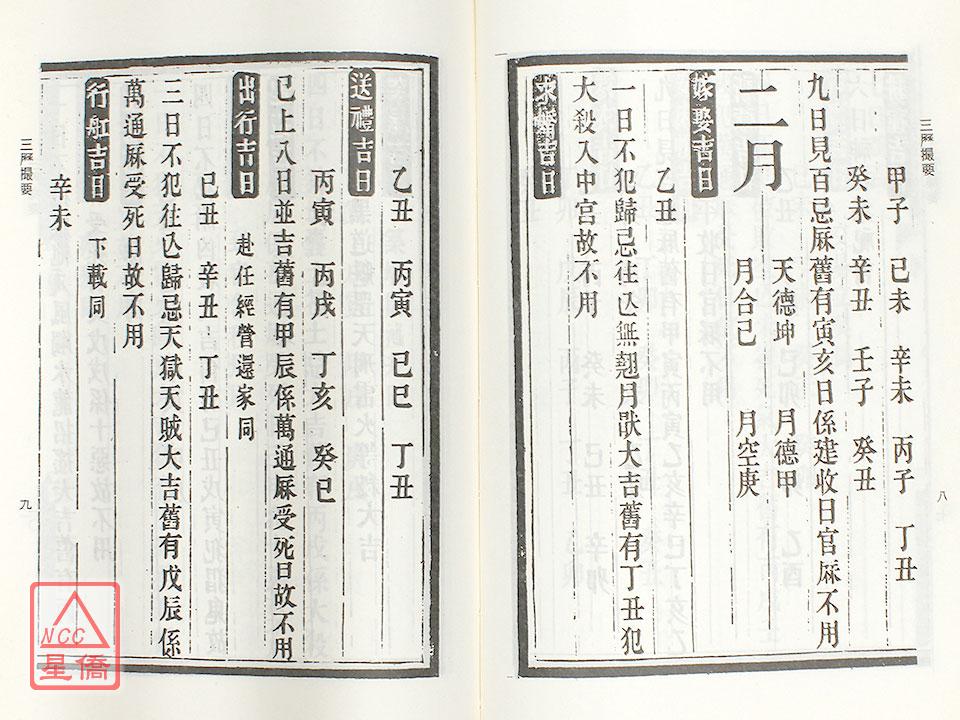 三曆撮要
甲子 己未 辛未 丙子 丁丑
癸未 辛丑 壬子 癸丑
九日見百忌厤舊有寅亥日係建收日官厤不用
二月
天德坤 月德甲
月合己 月空庚
嫁娶吉日
乙丑
一日不犯歸忌往亾無翹月猒大吉舊有丁丑犯
大殺入中宮故不用
求婚吉日
八
乙丑 丙寅 己巳 丁丑
送禮吉日
丙寅 丙戌 丁亥 癸巳
巳上八日並吉舊有甲辰係萬通厤受死日故不用
出行吉日 赴任經營還家同
己丑 辛丑 丁丑
三日不犯往亾歸忌天獄天賊大吉舊有戊辰係
萬通厤受死日故不用
行舡吉日 下載同
辛未
三曆撮要
九
NCC
星僑